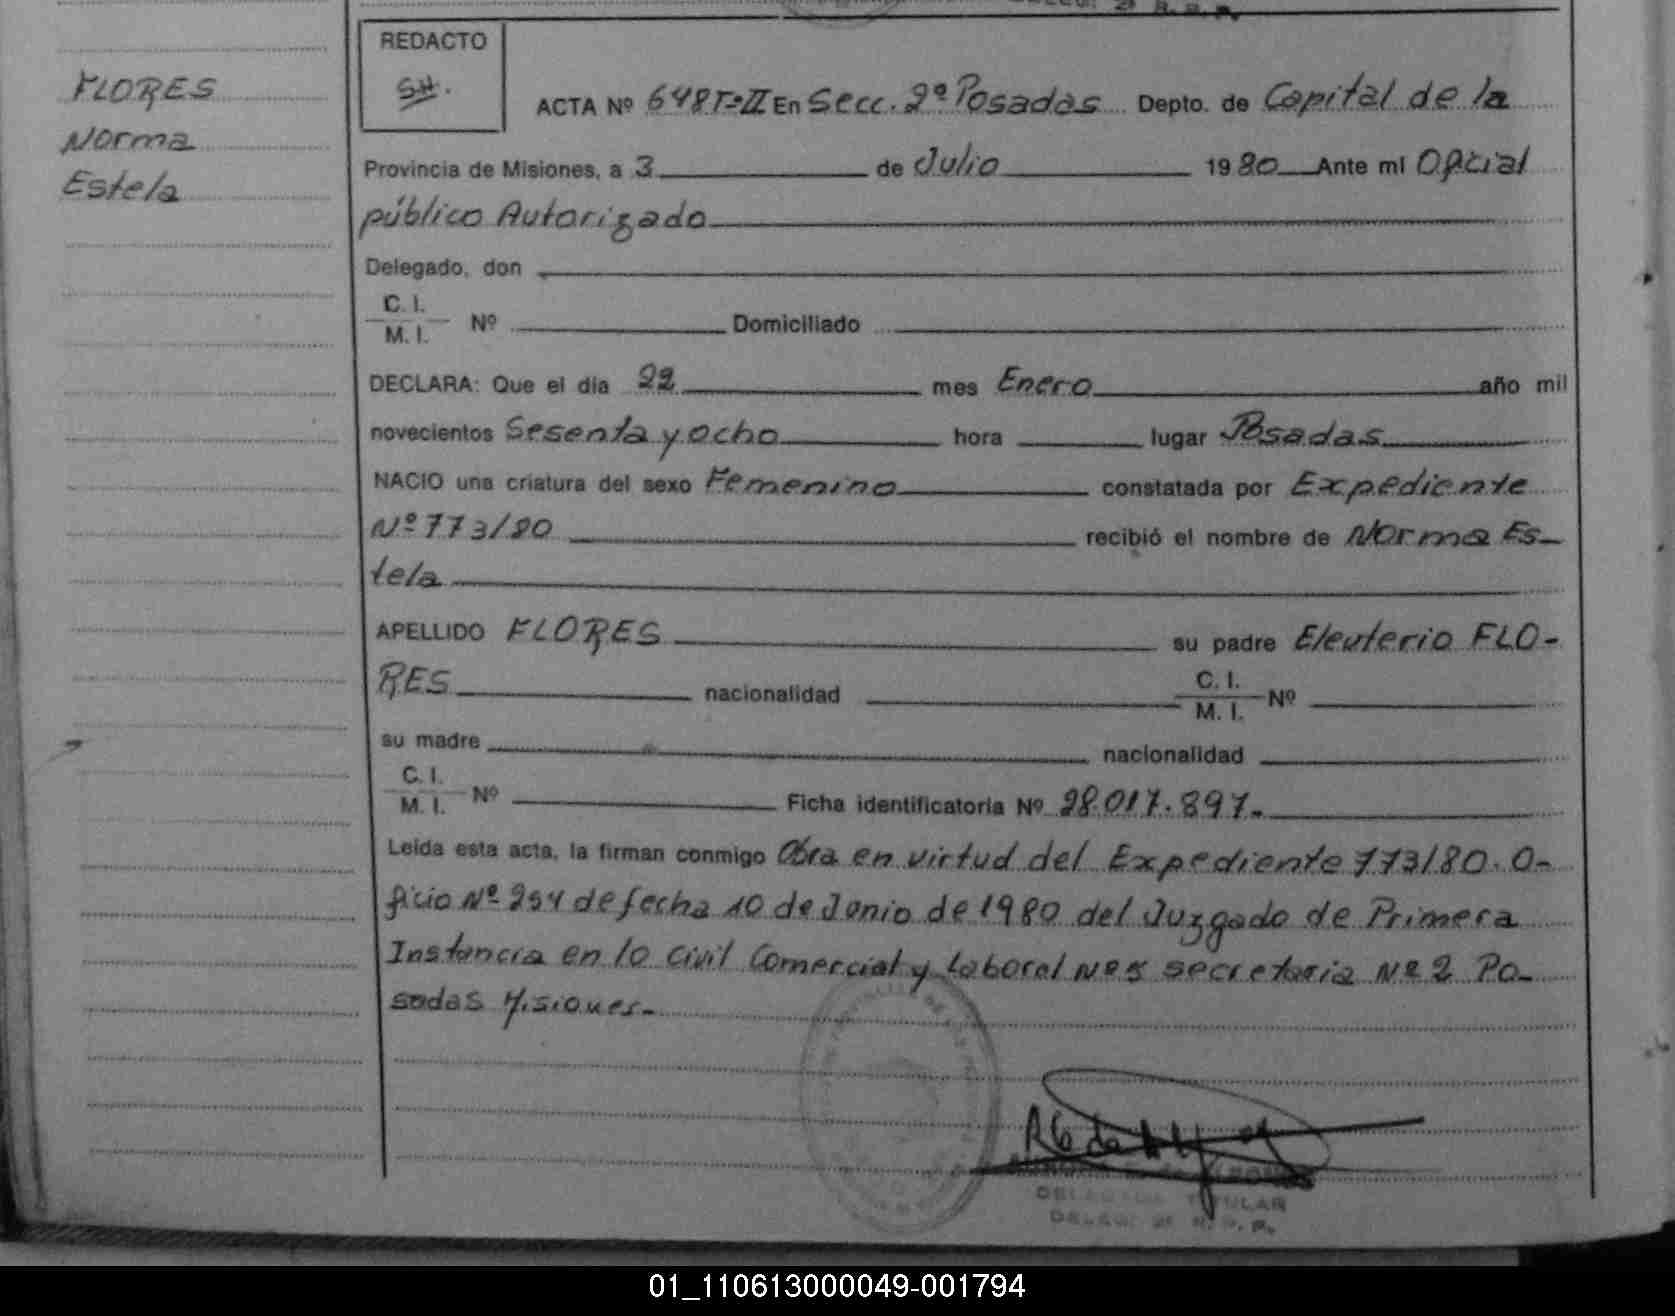 FLORES
Norma
Estela
REDACTO
SH.
ACTA Nº 648 Tº II En Secc. 2º Posadas Depto. de Capital de la
Provincia de Misiones, a 3 de Julio 1980 Ante mi Oficial
público Autorizado
Delegado, don
C. I.
M. I. Nº Domiciliado
DECLARA: Que el día 22 mes Enero año mil
novecientos Sesenta y ocho hora lugar Posadas
NACIO una criatura del sexo Femenino constatada por Expediente
Nº 773/80 recibió el nombre de Norma Es-
tela
APELLIDO FLORES su padre Eleuterio FLO-
RES nacionalidad C. I.
M. I. Nº
su madre nacionalidad
C. I.
M. I. Nº Ficha identificatoria Nº 28.017.897.
Leída esta acta, la firman conmigo Obra en virtud del Expediente 773/80. O-
ficio Nº 254 de fecha 10 de Junio de 1980 del Juzgado de Primera
Instancia en lo Civil Comercial y Laboral Nº 5 secretaria Nº 2 Po-
sadas Misiones.-
DELEGADA TITULAR
DELEG. 2ª R. P. P.
01_110613000049-001794